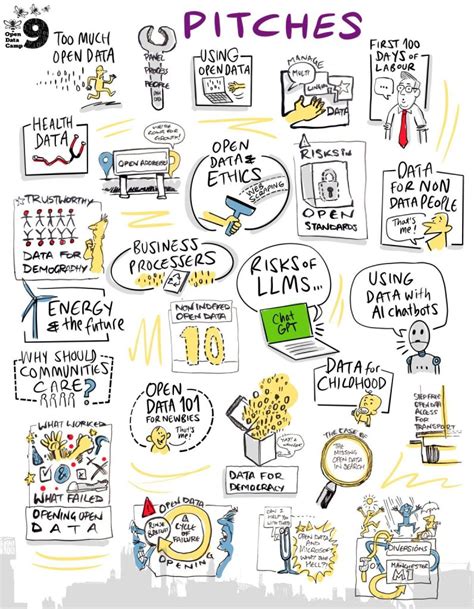 Open
Data
Camp
9
PITCHES
TOO MUCH
OPEN DATA
PANEL
PROCESS
PEOPLE
USING
OPEN DATA
MANAGE
MULTI
DATA
FIRST 100
DAYS OF
LABOUR
HEALTH
DATA
OPEN ADDRESS
OPEN
DATA &
ETHICS
WEB
SCRAPING
RISKS IN
OPEN
STANDARDS
DATA
FOR NON
DATA PEOPLE
That's
me!
TRUSTWORTHY
DATA FOR
DEMOGRAPHY
BUSINESS
PROCESSERS
RISKS OF
LLMS...
Chat
GPT
USING
DATA with
AI chatbots
ENERGY
& the future
NON INDEXED
OPEN DATA
10
WHY SHOULD
COMMUNITIES
CARE?
OPEN
DATA 101
FOR NEWBIES
That's
me!
DATA for
CHILDHOOD
STEP FREE
OPEN DATA
ACCESS
FOR
TRANSPORT
WHAT WORKED
WHAT FAILED
OPENING OPEN
DATA
DATA FOR
DEMOCRACY
THE CASE OF
THE
MISSING
OPEN DATA
IN SEARCH
OPEN DATA
A
CYCLE
OF
FAILURE
OPENING
CAN I
HELP YOU
WITH THAT?
OPEN DATA
AND
MICROSOFT
WHAT THE
HELL?
DIVERSIONS
MANCHESTER